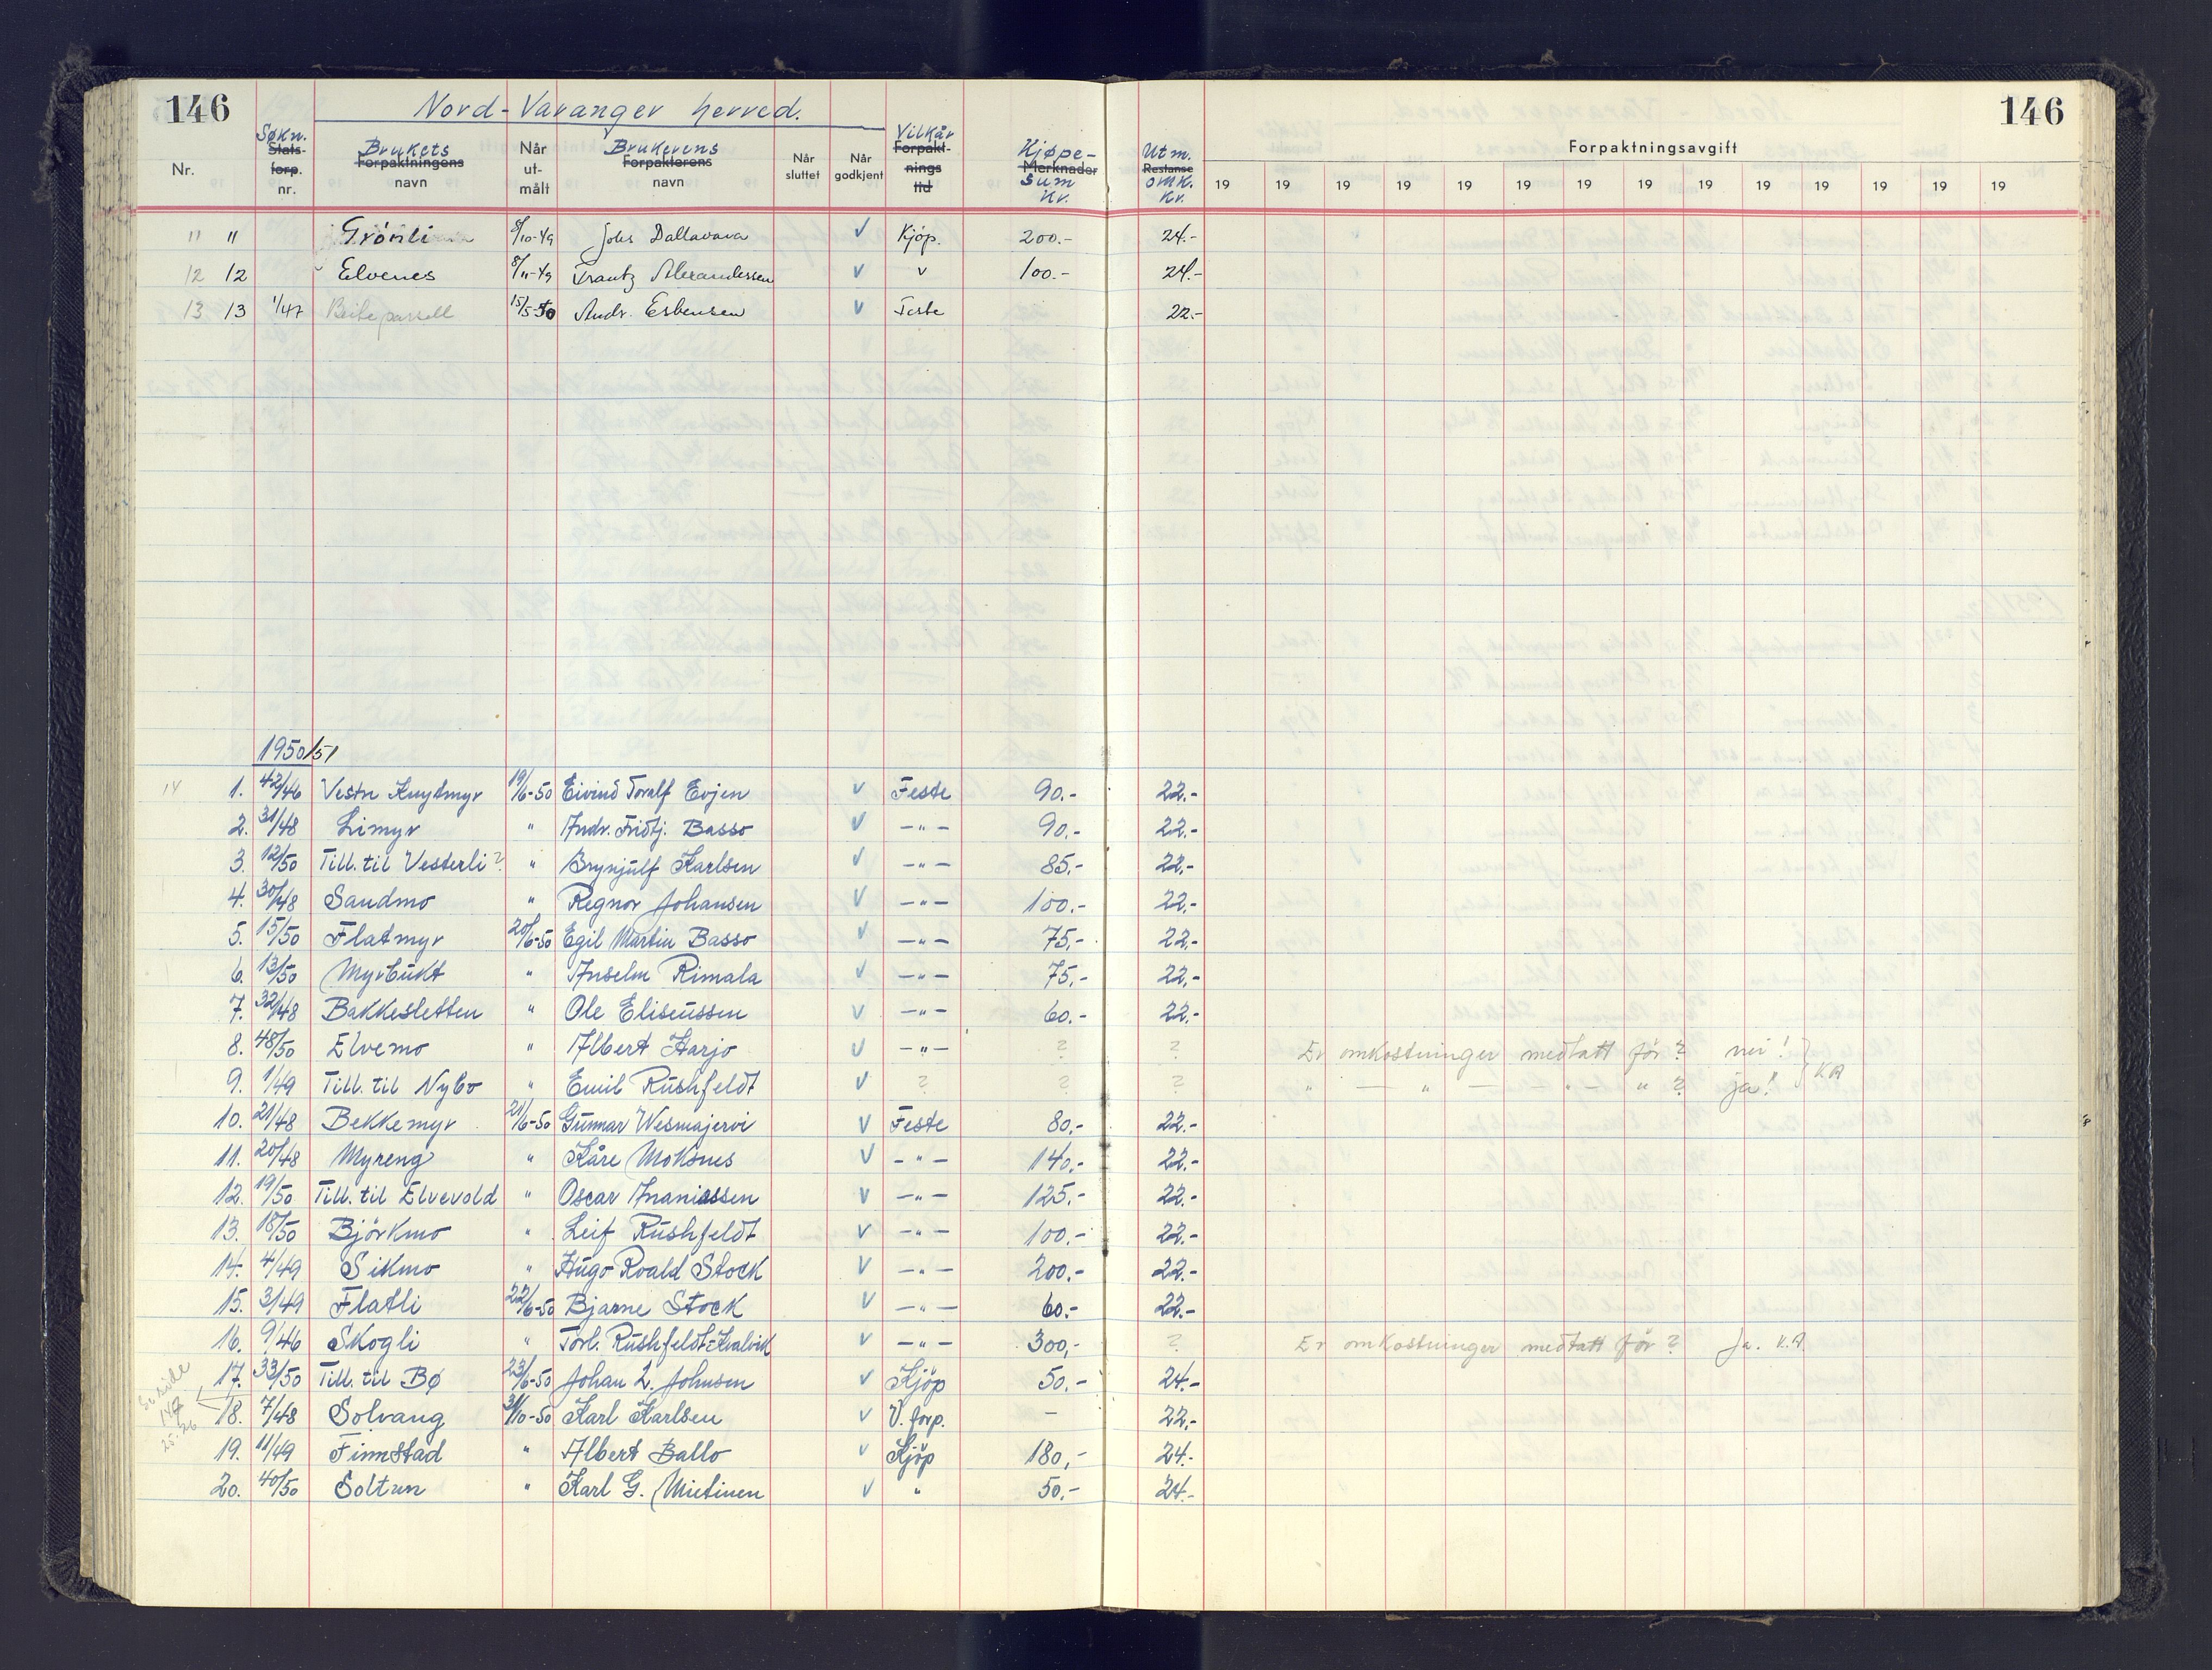 146 Nord-Varanger herred. 146
Nr. Søkn. Stats- forp. nr. Brukets Forpaktningens navn Når ut- målt Brukerens Forpakterens navn Når sluttet Når godkjent Vilkår Forpakt- nings tid Kjøpe- Merknader sum Kr. Utm. Restanse omk. Kr. Forpaktningsavgift
19 19 19 19 19 19 19 19 19 19 19 19 19 19
11 11 Grönli 8/10-49 Johs Dallavara v Kjöp. 200.- 24.-
12 12 Elvenes 8/11-49 Frantz Alexandersen v v 100.- 24.-
13 13 1/47 Beiteparsell 15/5-50 Andr. Esbensen v Feste 22.-
1950/51
14 1. 42/46 Vestre Knydmyr 19/6-50 Eivind Toralf Evjen v Feste 90.- 22.-
2. 31/48 Limyr " Andr. Fridtj. Basso v -"- 90.- 22.-
3. 12/50 Till. til Vesterli? " Brynjulf Karlsen v -"- 85.- 22.-
4. 30/48 Sandmo " Regnor Johansen v -"- 100.- 22.-
5. 15/50 Flatmyr 20/6-50 Egil Martin Basso v -"- 75.- 22.-
6. 13/50 Myrbukt " Anselm Rimala v -"- 75.- 22.-
7. 32/48 Bakkesletten " Ole Eliseussen v -"- 60.- 22.-
8. 48/50 Elvemo " Albert Harjo v -"- ? ? Er omkostninger medtatt før? nei!
9. 1/49 Till. til Nybo " Emil Rushfeldt v ? ? ? " - " - " - " ? ja! } KA
10. 21/48 Bekkemyr 21/6-50 Gunnar Wesmajervi v Feste 80.- 22.-
11. 20/48 Myreng " Kåre Moksnes v -"- 140.- 22.-
12. 19/50 Till. til Elvevold " Oscar Inaniassen v -"- 125.- 22.-
13. 18/50 Björkmo " Leif Rushfeldt v -"- 100.- 22.-
14. 4/49 Sikmo " Hugo Roald Stock v -"- 200.- 22.-
15. 3/49 Flatli 22/6-50 Bjarne Stock v -"- 60.- 22.-
16. 9/46 Skogli " Torl. Rushfeldt-Kvalvik v -"- 300,- ? Er omkostninger medtatt før? Ja. K.A
17. 33/50 Till. til Bø 23/6-50 Johan L. Johnsen v Kjöp 50.- 24.-
Se side 147 25-26
18. 7/48 Solvang 31/10-50 Karl Karlsen v V. forp. - 22.-
19. 11/49 Finnstad " Albert Ballo v Kjöp 180,- 24.-
20. 40/50 Soltun " Karl G. Mietinen v " 50.- 24.-